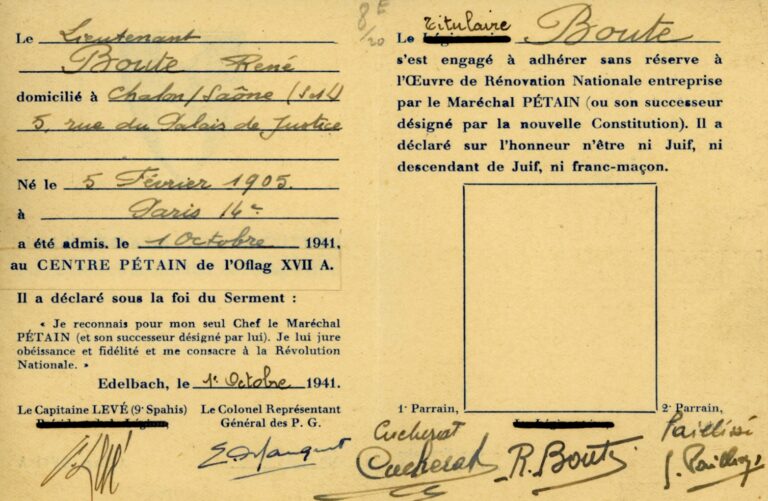 Le Lieutenant
Boute René
domicilié à Chalon/Saône (S&L)
5, rue du Palais de Justice
Né le 5 Février 1905.
à Paris 14e
a été admis, le 1 Octobre 1941,
au CENTRE PÉTAIN de l'Oflag XVII A.
Il a déclaré sous la foi du Serment :
« Je reconnais pour mon seul Chef le Maréchal
PÉTAIN (et son successeur désigné par lui). Je lui jure
obéissance et fidélité et me consacre à la Révolution
Nationale. »
Edelbach, le 1e Octobre 1941.
Le Capitaine LEVÉ (9e Spahis)
Le Colonel Représentant
Général des P. G.
8E
/20
Titulaire
Le Boute
s'est engagé à adhérer sans réserve à
l'Œuvre de Rénovation Nationale entreprise
par le Maréchal PÉTAIN (ou son successeur
désigné par la nouvelle Constitution). Il a
déclaré sur l'honneur n'être ni Juif, ni
descendant de Juif, ni franc-maçon.
1r Parrain,
2e Parrain,
Cucherat
Cucherat
R. Boute